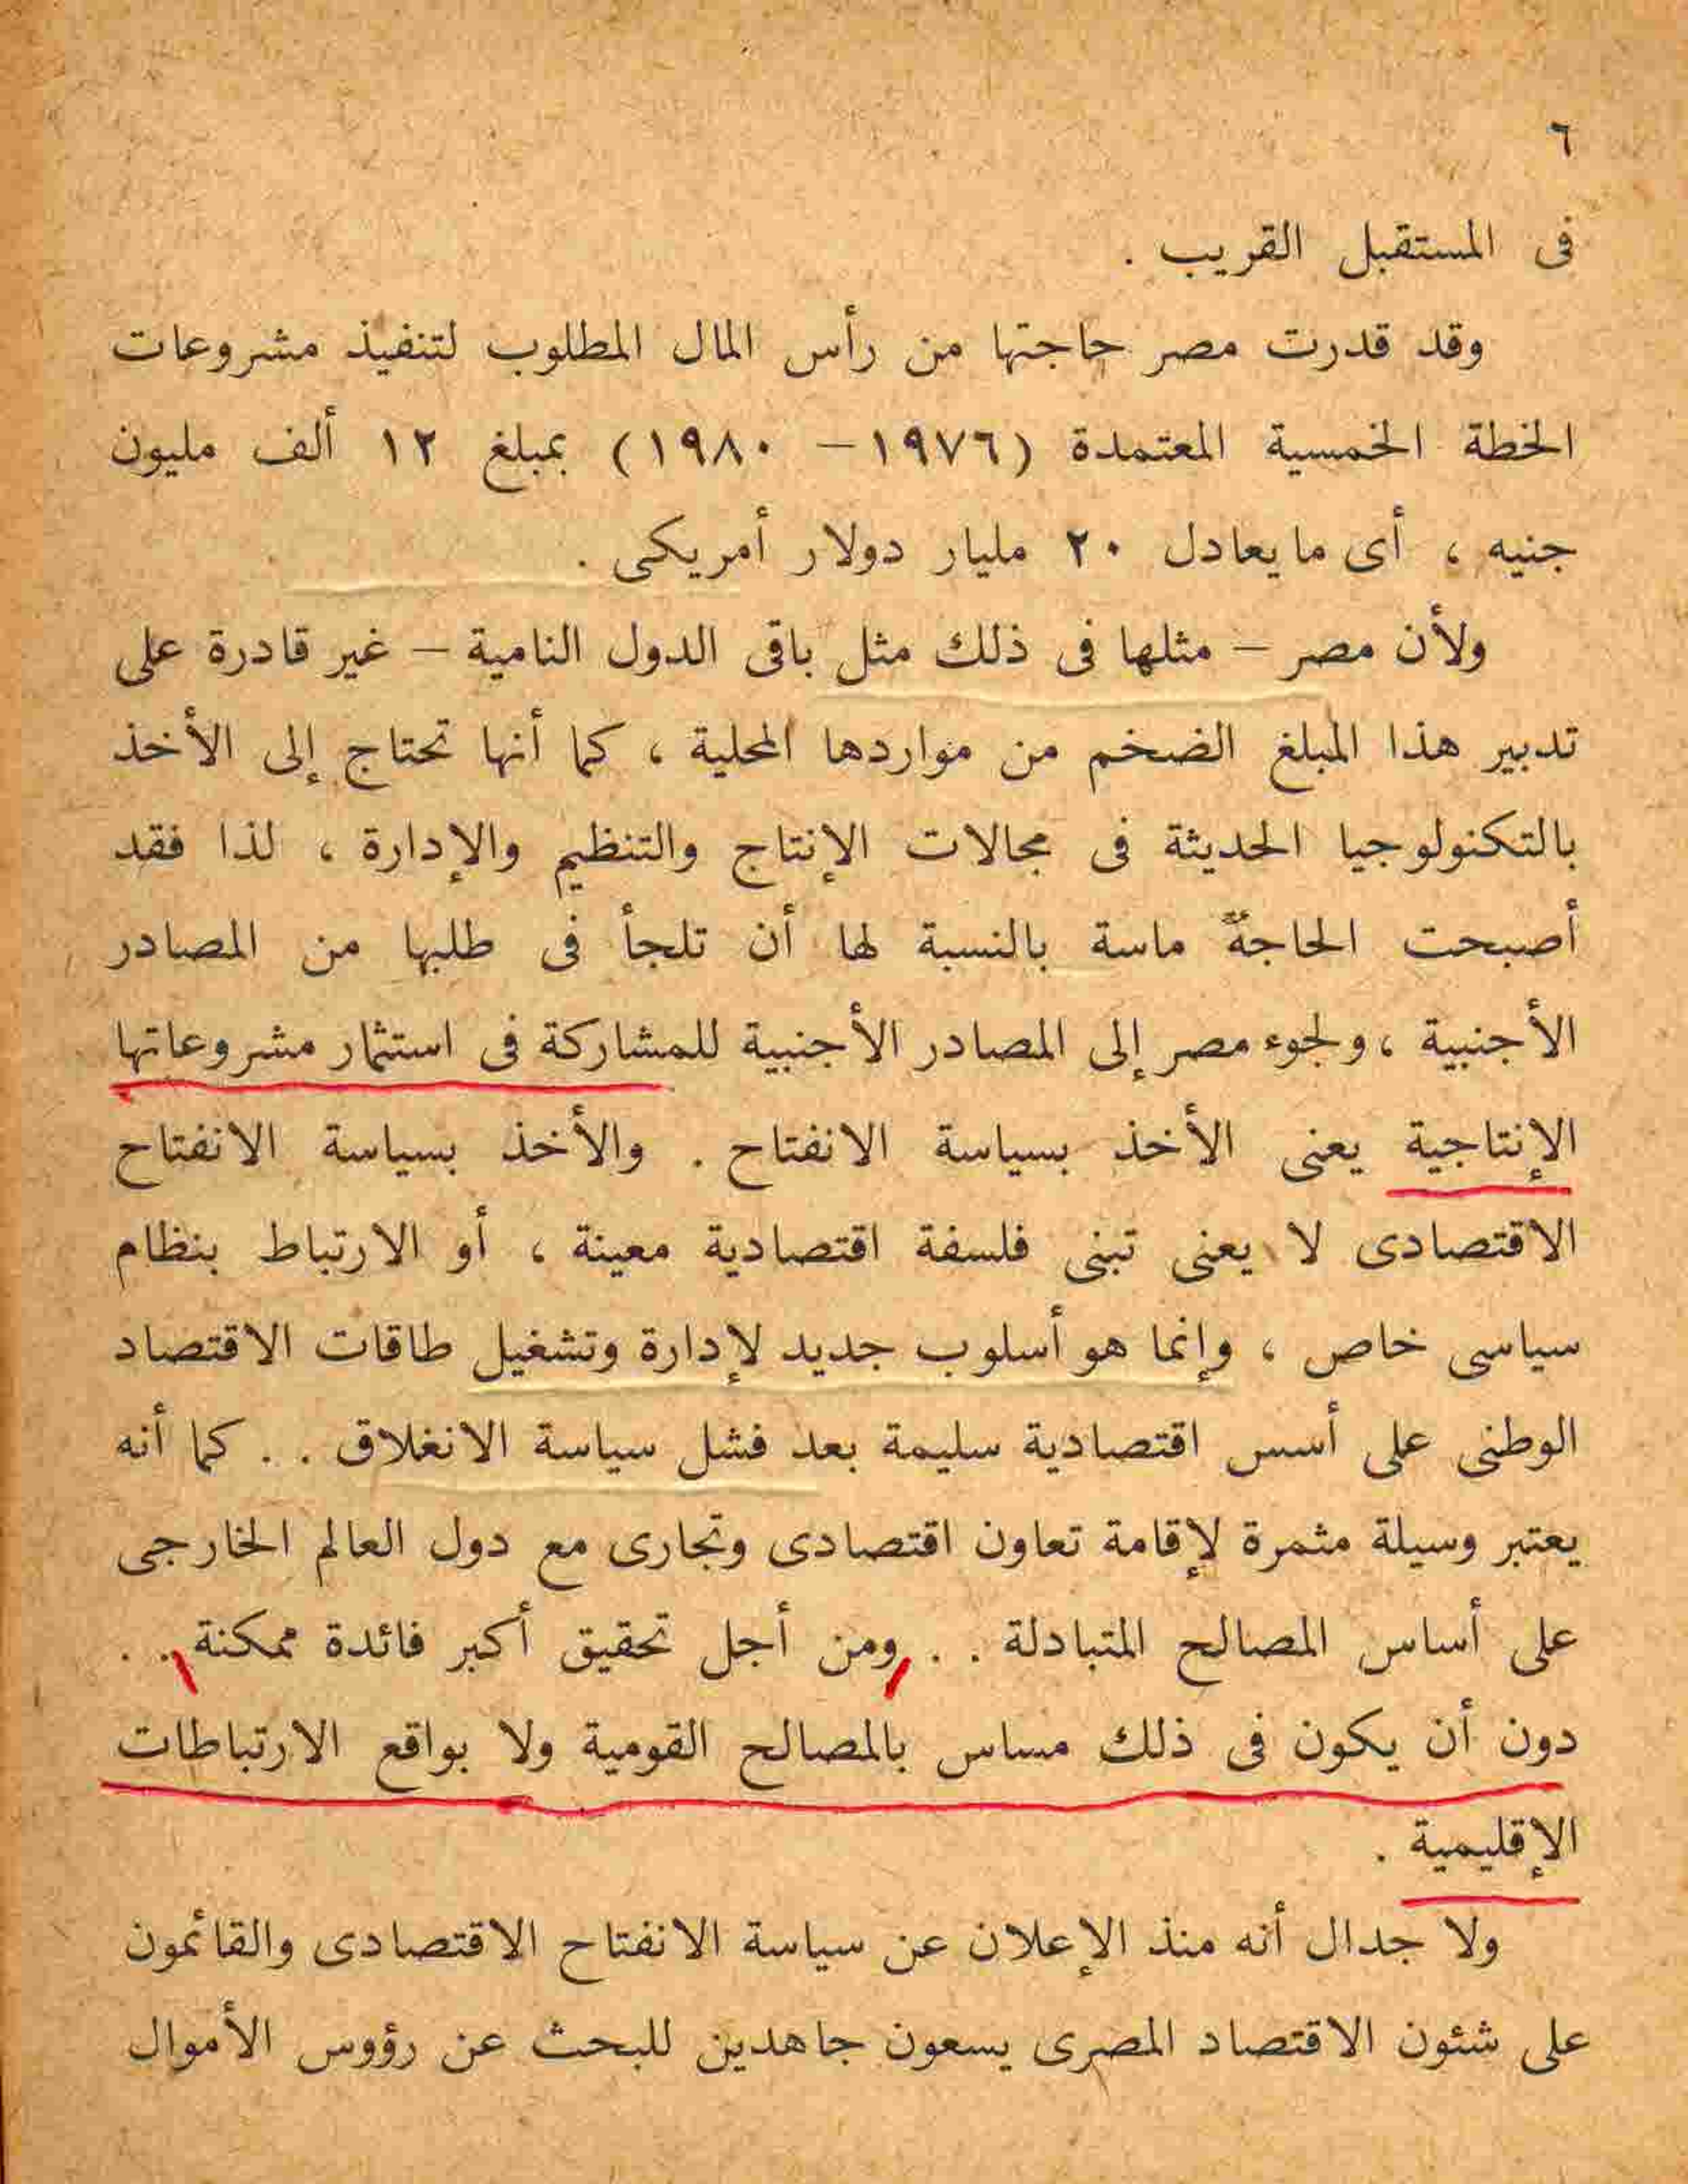 ٦
فى المستقبل القريب .
وقد قدرت مصر حاجتها من رأس المال المطلوب لتنفيذ مشروعات
الخطة الخمسية المعتمدة (١٩٧٦ – ١٩٨٠) بمبلغ ١٢ ألف مليون
جنيه ، أى ما يعادل ٢٠ مليار دولار أمريكى .
ولأن مصر – مثلها فى ذلك مثل باقى الدول النامية – غير قادرة على
تدبير هذا المبلغ الضخم من مواردها المحلية ، كما أنها تحتاج إلى الأخذ
بالتكنولوجيا الحديثة فى مجالات الإنتاج والتنظيم والإدارة ، لذا فقد
أصبحت الحاجةُ ماسة بالنسبة لها أن تلجأ فى طلبها من المصادر
الأجنبية ، ولجوء مصر إلى المصادر الأجنبية للمشاركة فى استثمار مشروعاتها
الإنتاجية يعنى الأخذ بسياسة الانفتاح . والأخذ بسياسة الانفتاح
الاقتصادى لا يعنى تبنى فلسفة اقتصادية معينة ، أو الارتباط بنظام
سياسى خاص ، وإنما هو أسلوب جديد لإدارة وتشغيل طاقات الاقتصاد
الوطنى على أسس اقتصادية سليمة بعد فشل سياسة الانغلاق . . كما أنه
يعتبر وسيلة مثمرة لإقامة تعاون اقتصادى وتجارى مع دول العالم الخارجى
على أساس المصالح المتبادلة . . ومن أجل تحقيق أكبر فائدة ممكنة . .
دون أن يكون فى ذلك مساس بالمصالح القومية ولا بواقع الارتباطات
الإقليمية .
ولا جدال أنه منذ الإعلان عن سياسة الانفتاح الاقتصادى والقائمون
على شئون الاقتصاد المصرى يسعون جاهدين للبحث عن رؤوس الأموال